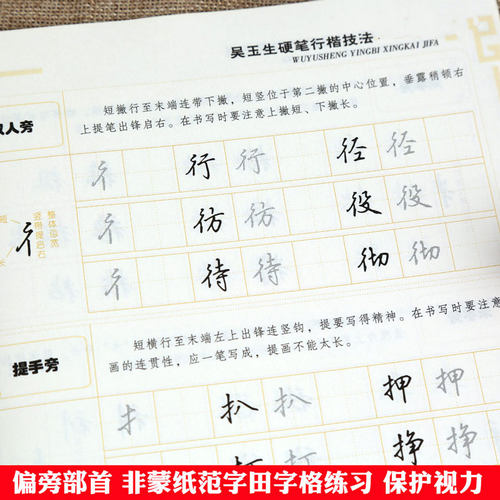 吴玉生硬笔行楷技法
WUYUSHENG YINGBI XINGKAI JIFA
人旁
短撇行至末端连带下撇，短竖位于第二撇的中心位置，垂露稍顿右
上提笔出锋启右。在书写时要注意上撇短、下撇长。
彳 行 行 径 径
彳 彷 彷 役 役
彳 待 待 彻 彻
彳
整体窄宽
竖用提启右
短
长
提手旁
短横行至末端左上出锋连竖钩，提要写得精神。在书写时要注意
画的连贯性，应一笔写成，提画不能太长。
扌 扒 扒 押 押
打 打 挣 挣
偏旁部首 非蒙纸范字田字格练习 保护视力